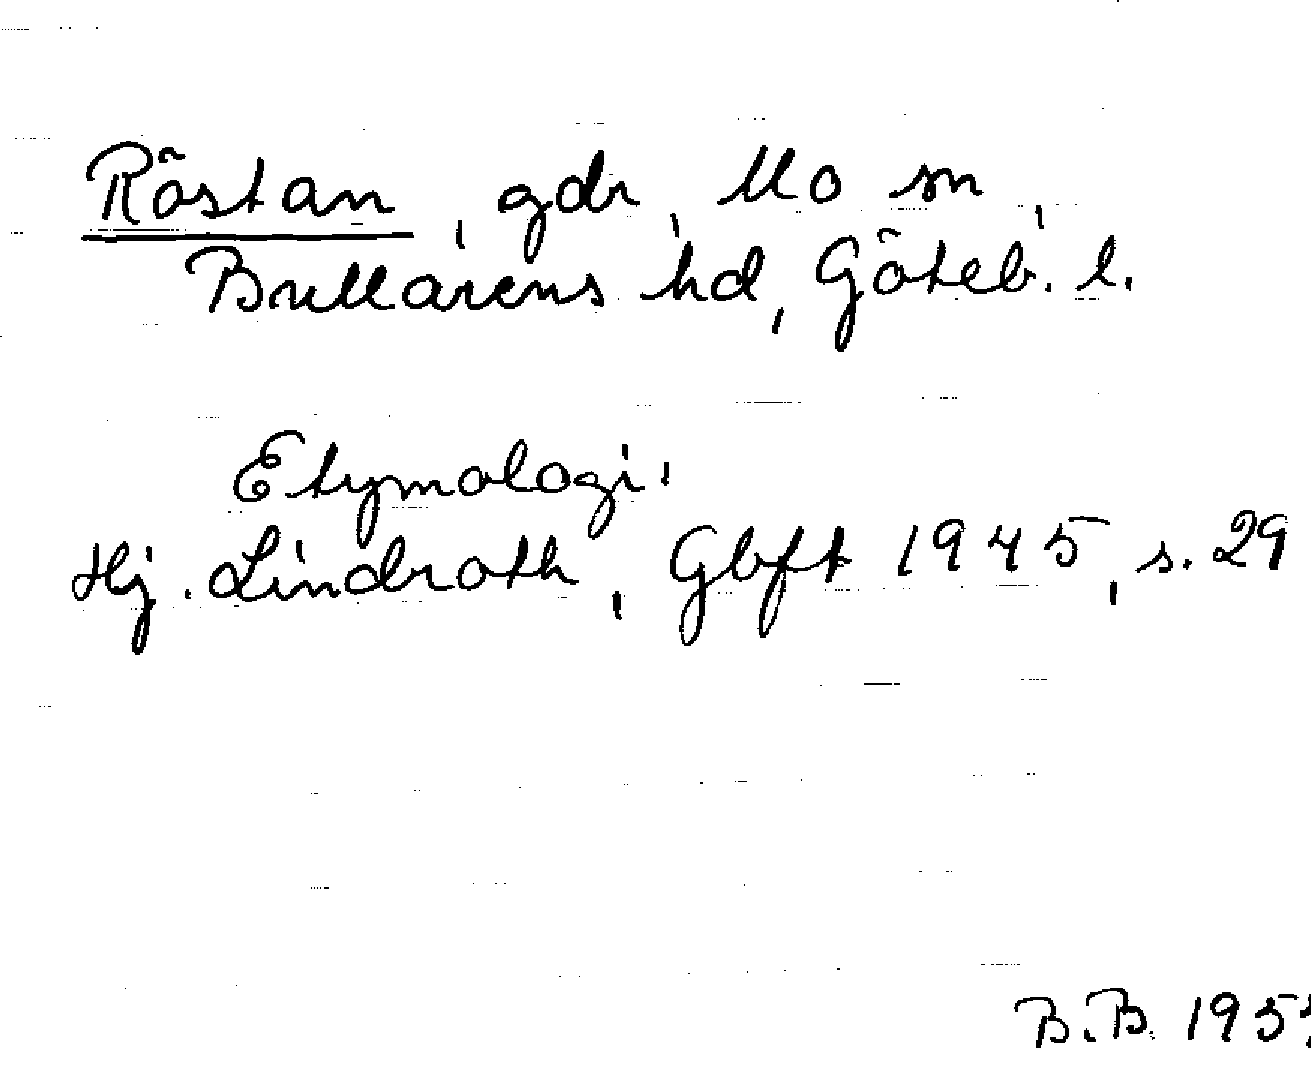 Röstan, gdr, Mo sn,
Bullarens hd, Göteb. l.
Etymologi.
Hj. Lindroth, Gbft 1945, s. 29
B.B. 195